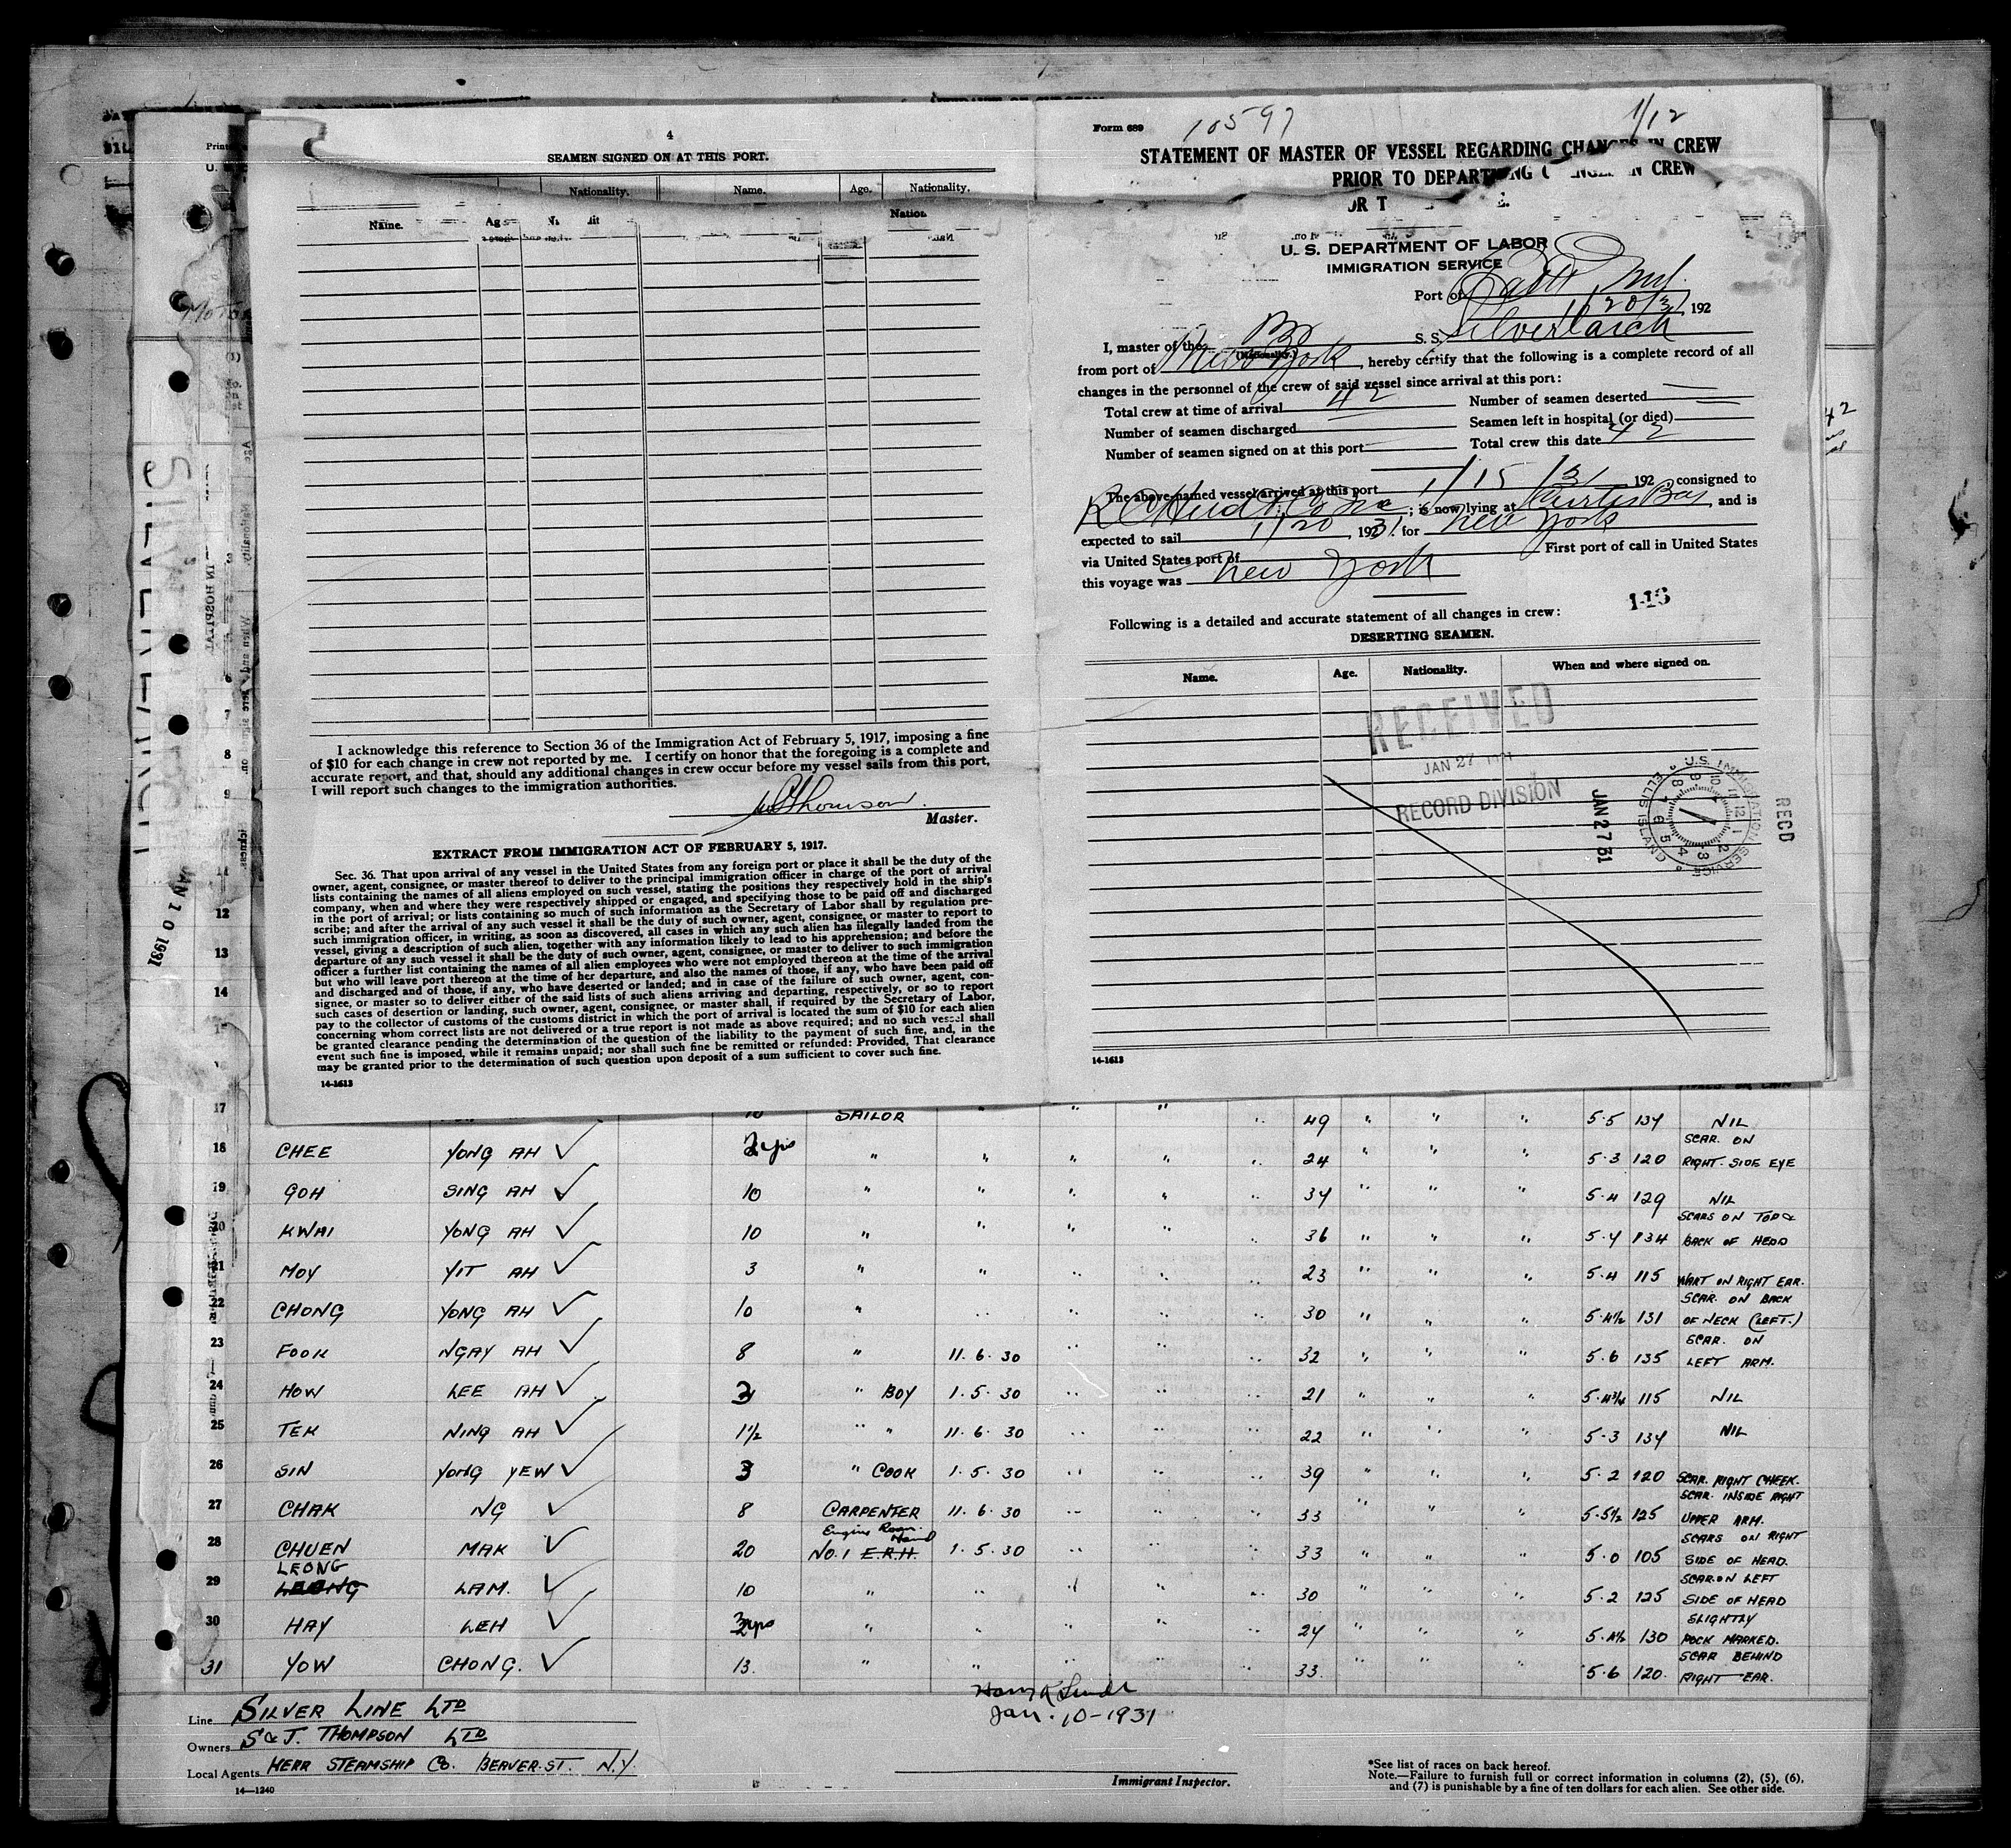 4
SEAMEN SIGNED ON AT THIS PORT.
Nationality. Name. Age. Nationality.
Name.
I acknowledge this reference to Section 36 of the Immigration Act of February 5, 1917, imposing a fine
of $10 for each change in crew not reported by me. I certify on honor that the foregoing is a complete and
accurate report, and that, should any additional changes in crew occur before my vessel sails from this port,
I will report such changes to the immigration authorities.
Thomson.
Master.
EXTRACT FROM IMMIGRATION ACT OF FEBRUARY 5, 1917.
Sec. 36. That upon arrival of any vessel in the United States from any foreign port or place it shall be the duty of the
owner, agent, consignee, or master thereof to deliver to the principal immigration officer in charge of the port of arrival
lists containing the names of all aliens employed on such vessel, stating the positions they respectively hold in the ship's
company, when and where they were respectively shipped or engaged, and specifying those to be paid off and discharged
in the port of arrival; or lists containing so much of such information as the Secretary of Labor shall by regulation pre-
scribe; and after the arrival of any such vessel it shall be the duty of such owner, agent, consignee, or master to report to
such immigration officer, in writing, as soon as discovered, all cases in which any such alien has illegally landed from the
vessel, giving a description of such alien, together with any information likely to lead to his apprehension; and before the
departure of any such vessel it shall be the duty of such owner, agent, consignee, or master to deliver to such immigration
officer a further list containing the names of all alien employees who were not employed thereon at the time of the arrival
but who will leave port thereon at the time of her departure, and also the names of those, if any, who have been paid off
and discharged and of those, if any, who have deserted or landed; and in case of the failure of such owner, agent, con-
signee, or master so to deliver either of the said lists of such aliens arriving and departing, respectively, or so to report
such cases of desertion or landing, such owner, agent, consignee, or master shall, if required by the Secretary of Labor,
pay to the collector of customs of the customs district in which the port of arrival is located the sum of $10 for each alien
concerning whom correct lists are not delivered or a true report is not made as above required; and no such vessel shall
be granted clearance pending the determination of the question of the liability to the payment of such fine, and, in the
event such fine is imposed, while it remains unpaid; nor shall such fine be remitted or refunded: Provided, That clearance
may be granted prior to the determination of such question upon deposit of a sum sufficient to cover such fine.
14-1613
Form 689
10597
1/12
STATEMENT OF MASTER OF VESSEL REGARDING CHANGES IN CREW
PRIOR TO DEPARTING
U. S. DEPARTMENT OF LABOR
IMMIGRATION SERVICE
Port of Balto Md.
1/20/31, 192
I, master of the Br S. S. Silverlarch
(Nationality.)
from port of New York, hereby certify that the following is a complete record of all
changes in the personnel of the crew of said vessel since arrival at this port:
Total crew at time of arrival 42 Number of seamen deserted
Number of seamen discharged Seamen left in hospital (or died)
Number of seamen signed on at this port Total crew this date 42
The above-named vessel arrived at this port 1/15/31, 192, consigned to
; is now lying at Curtis Bay, and is
expected to sail 1/20, 1931 for New York
via United States port of First port of call in United States
this voyage was New York
1-16
Following is a detailed and accurate statement of all changes in crew:
DESERTING SEAMEN.
Name. Age. Nationality. When and where signed on.
RECEIVED
JAN 27
RECORD DIVISION
JAN 27 31
U.S. IMMIGRATION SERVICE ELLIS ISLAND
RECD
14-1613
JAN 10 1931
17 SAILOR " " " " 49 " " " 5.5 134 NIL
18 CHEE YONG AH ✓ 3yrs " " " " " 24 " " " 5.3 120 SCAR. ON RIGHT. SIDE EYE
19 GOH SING AH ✓ 10 " " " " " 34 " " " 5.4 129 NIL
20 KWAI YONG AH ✓ 10 " " " " " 36 " " " 5.4 134 SCARS ON TOP & BACK OF HEAD
21 MOY YIT AH ✓ 3 " " " " " 23 " " " 5.4 115 WART ON RIGHT EAR.
22 CHONG YONG AH ✓ 10 " " " " " 30 " " " 5.4½ 131 SCAR. ON BACK OF NECK (LEFT.)
23 FOOK NGAY AH ✓ 8 " 11.6.30 " " " 32 " " " 5.6 135 SCAR. ON LEFT ARM.
24 HOW LEE AH ✓ 3 " BOY 1.5.30 " " " 21 " " " 5.4¾ 115 NIL
25 TEK NING AH ✓ 1½ " " 11.6.30 " " " 22 " " " 5.3 134 NIL
26 SIN YONG YEW ✓ 3 " COOK 1.5.30 " " " 39 " " " 5.2 120 SCAR. RIGHT CHEEK.
27 CHAK NG ✓ 8 CARPENTER 11.6.30 " " " 33 " " " 5.5½ 125 SCAR. INSIDE RIGHT UPPER ARM.
28 CHUEN MAK ✓ 20 No.1 E.R.H. Engine Room Hand 1.5.30 " " " 33 " " " 5.0 105 SCARS ON RIGHT SIDE OF HEAD.
29 LEONG LEONG LAM. ✓ 10 " " " " " 30 " " " 5.2 125 SCAR ON LEFT SIDE OF HEAD
30 HAY LEH ✓ 3yrs " " " " " 24 " " " 5.4½ 130 SLIGHTLY POCK MARKED.
31 YOW CHONG. ✓ 13. " " " " " 33. " " " 5.6 120. SCAR BEHIND RIGHT EAR.
Line SILVER LINE LTD
Owners S & J. THOMPSON LTD
Local Agents KERR STEAMSHIP CO. BEAVER. ST. N.Y.
14—1240
Jan. 10-1931
Immigrant Inspector.
*See list of races on back hereof.
Note.—Failure to furnish full or correct information in columns (2), (5), (6),
and (7) is punishable by a fine of ten dollars for each alien. See other side.